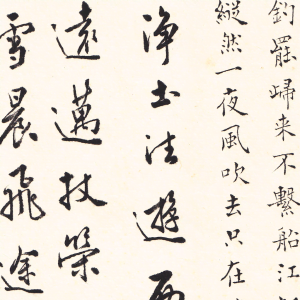 釣罷歸来不繫船江
縱然一夜風吹去只在
淨土注遊西
遠邁杖策
雪晨飛途